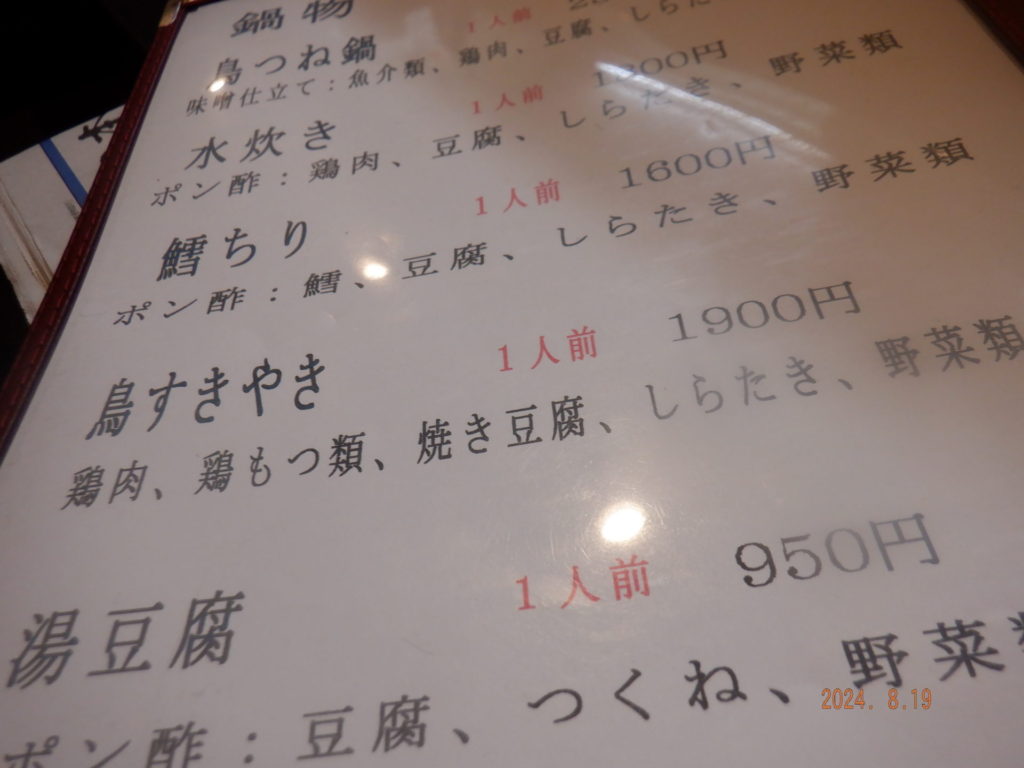 鍋物
鳥つね鍋 1人前
味噌仕立て：魚介類、鶏肉、豆腐、しらた
水炊き 1人前 1300円
ポン酢：鶏肉、豆腐、しらたき、野菜類
鱈ちり 1人前 1600円
ポン酢：鱈、豆腐、しらたき、野菜類
鳥すきやき 1人前 1900円
鶏肉、鶏もつ類、焼き豆腐、しらたき、野菜類
湯豆腐 1人前 950円
ポン酢：豆腐、つくね、野菜類
2024. 8.19